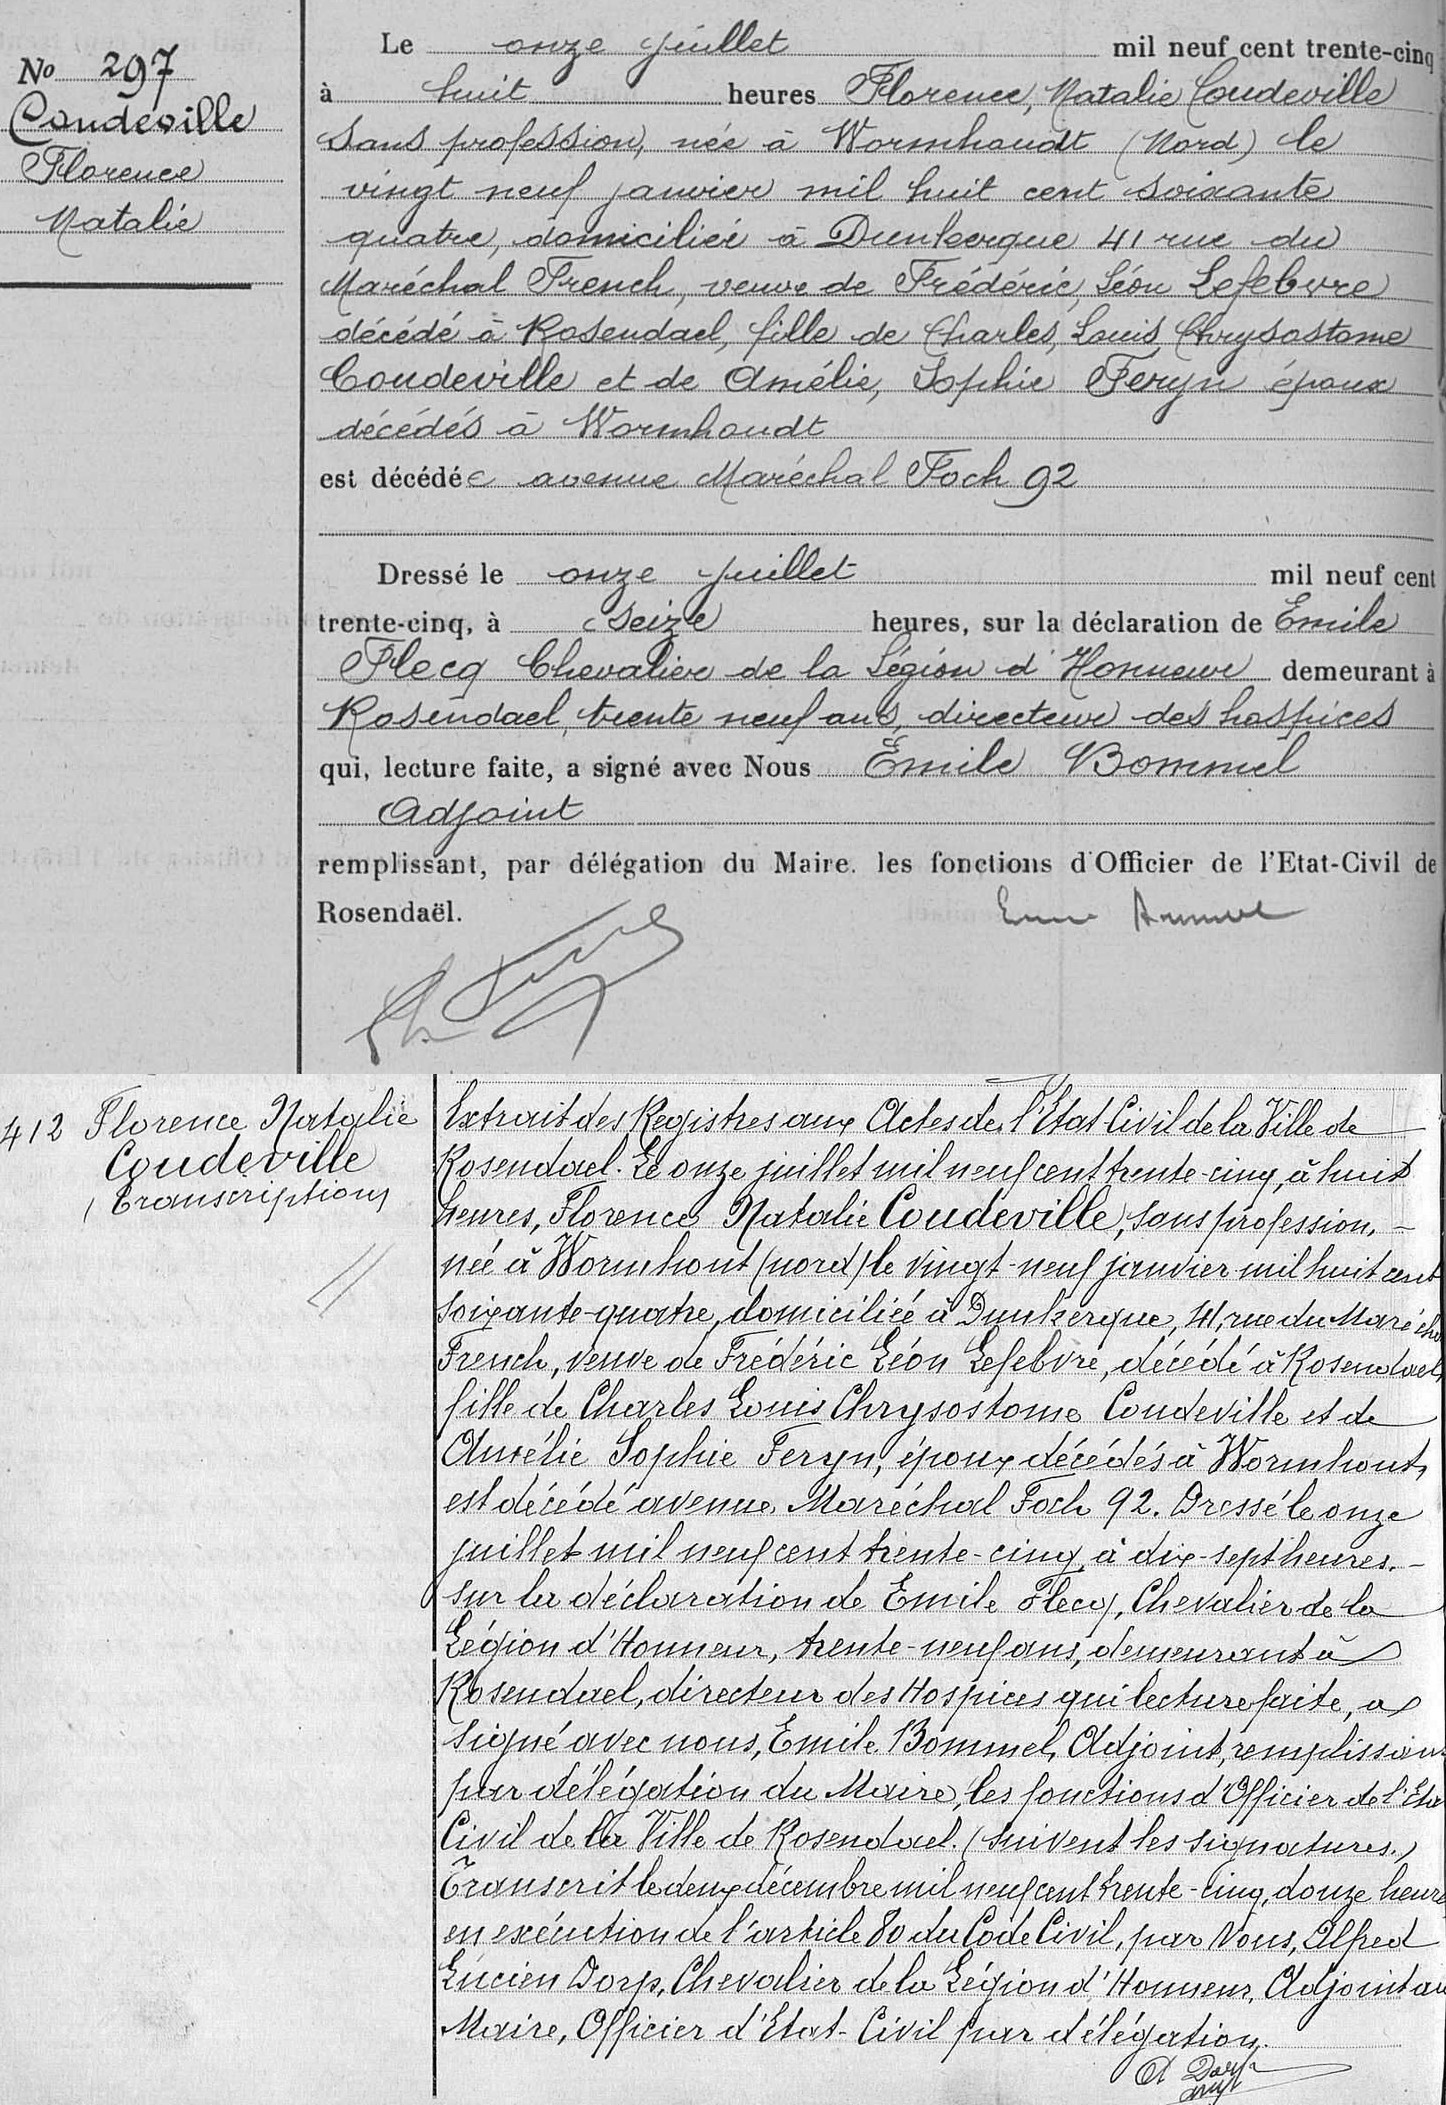 No 297
Coudeville
Florence
Natalie
Le onze juillet mil neuf cent trente-cinq
à huit heures Florence, Natalie Coudeville
sans profession, née à Wormhoudt (Nord) le
vingt neuf janvier mil huit cent soixante
quatre, domiciliée à Dunkerque 41 rue du
Maréchal French, veuve de Frédéric, Léon Lefebvre
décédé à Rosendael, fille de Charles, Louis Chrysostome
Coudeville et de Amélie, Sophie Feryn époux
décédés à Wormhoudt
est décédée avenue Maréchal Foch 92
Dressé le onze juillet mil neuf cent
trente-cinq, à seize heures, sur la déclaration de Emile
Flecq Chevalier de la Légion d'Honneur demeurant à
Rosendael, trente neuf ans, directeur des hospices
qui, lecture faite, a signé avec Nous Emile Bommel
Adjoint
remplissant, par délégation du Maire. les fonctions d'Officier de l'Etat-Civil de
Rosendaël.
412 Florence Natalie
Coudeville
(Transcription)
Extrait des Registres aux Actes de l'Etat Civil de la Ville de
Rosendael. Le onze juillet mil neuf cent trente-cinq, à huit
heures, Florence Natalie Coudeville, sans profession, -
née à Wormhout (nord) le vingt-neuf janvier mil huit cent
soixante-quatre, domiciliée à Dunkerque, 41, rue du Marécha
French, veuve de Frédéric Léon Lefebvre, décédé à Rosendael,
fille de Charles Louis Chrysostome Coudeville et de
Amélie Sophie Feryn, époux décédés à Wormhout,
est décédé avenue Maréchal Foch 92. Dressé le onze
juillet mil neuf cent trente-cinq, à dix-sept heures. -
sur la déclaration de Emile Flecq, Chevalier de la
Légion d'Honneur, trente-neuf ans, demeurant à
Rosendael, directeur des Hospices qui lecture faite, a
signé avec nous, Emile Bommel, Adjoint, remplissant
par délégation du Maire, les fonctions d'Officier de l'Eta
Civil de la Ville de Rosendael. (suivent les signatures.)
Transcrit le deux décembre mil neuf cent trente-cinq, douze heures
en exécution de l'article 80 du Code Civil, par Nous, Alfred
Lucien Dorp, Chevalier de la Légion d'Honneur, Adjoint au
Maire, Officier d'Etat-Civil par délégation.
A Dorp